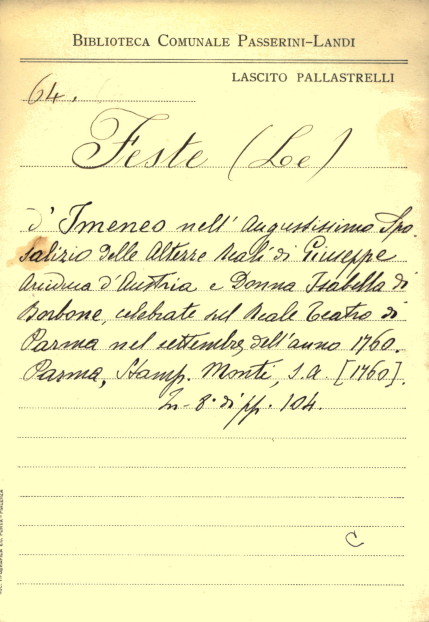 BIBLIOTECA COMUNALE PASSERINI-LANDI
LASCITO PALLASTRELLI
64.
Feste (Le)
d'Imeneo nell'Augustissimo Spo-
salizio delle Alterre Reali di Giuseppe
Arciduca d'Austria e Donna Isabella di
Borbone, celebrate sul Reale Teatro di
Parma nel settembre dell'anno 1760.
Parma, Stamp. Monti, s.a. [1760].
In-8° di pp. 104.
C